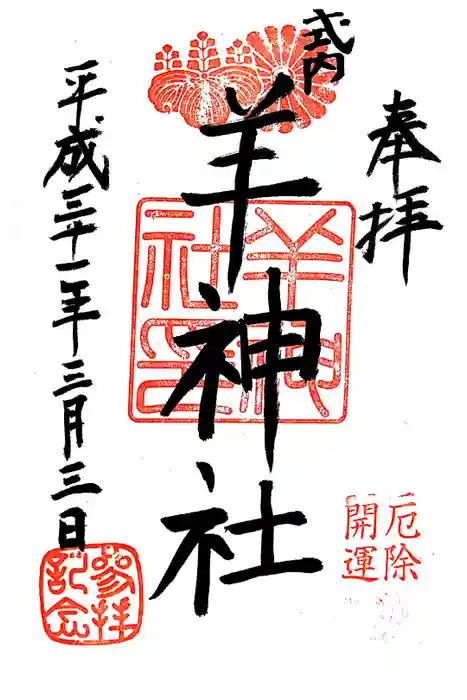 奉拝
式内
羊神社
平成三十一年三月三日
羊神社印
厄除
開運
参拝
記念